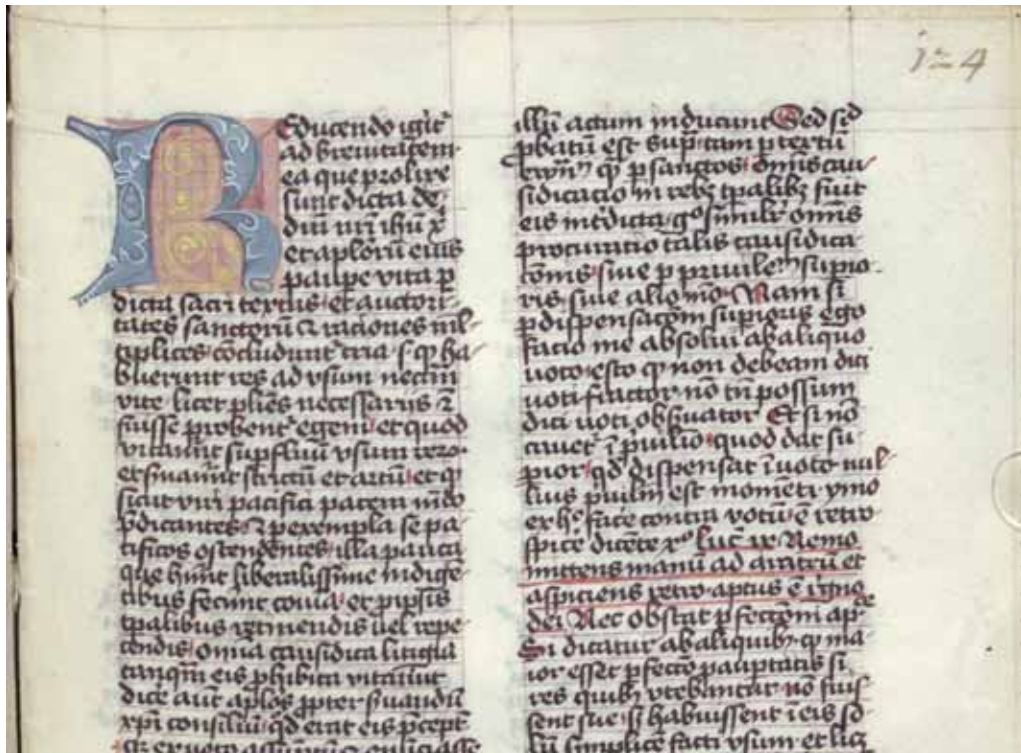 j 4
Reducendo igitr
ad breuitatem
ea que prolixe
sunt dicta de
dni nri ihu x
et aplorũ eius
paupe vita p
dicta sacri textus et auctori
tates sanctorũ ⁊ raciones ml
tiplices cõcludunt tria s ꝙ ha
buerunt res ad vsum necẽm
vite licet plies necessarijs ⁊
fuisse probent egeni et quod
vitarũt supfluũ vsum rero
et suarũt strictũ et artũ et ꝙ
sicut viri pacifici pacem mũdo
pdicantes ⁊ p exempla se pa
cificos ostendentes illa pauca
que hũnt liberalissime indigẽ
tibus fecũnt cõia et p ipsis
tpalibus retinendis uel repe
tendis omia causidica litigia
tanqm̃ eis phibita vitarũt
dice autẽ aplos ppter suandũ
xpi consiliũ qd erat eis pcept
illũ actum inducunt Sed sed
pbatũ est sup tam p textũ
ewn ꝙ p sanctos omis cau
sidicacio in rebz tpalibz fuit
eis intdicta gͦ similr omis
procuratio talis causidica
cõnis siue p priuile supio
ris siue alio mͦ Nam si
p dispensacõm supioris ego
facio me absolui ab aliquo
uoto esto ꝙ non debeam dici
uoti fractor nõ tñ possum
dici uoti obseruator Et si nõ
cauet ĩ priuilio quod dat su
pior qd dispensat ĩ uoto nul
lius priuilm est momẽti ymo
ex hͦ face contra votũ ẽ retro
spice dicẽte xͦ luc ix Nemo
mittens manũ ad aratrũ et
aspiciens retro aptus ẽ regno
dei Nec obstat pfectõni
Si dicatur ab aliquibz ꝙ ma
ior esset pfectõ pauptatis si
res quibz vtebantur nõ fuis
sent sue si habuissent ĩ eis so
lũ simplicẽ facti vsum et lic